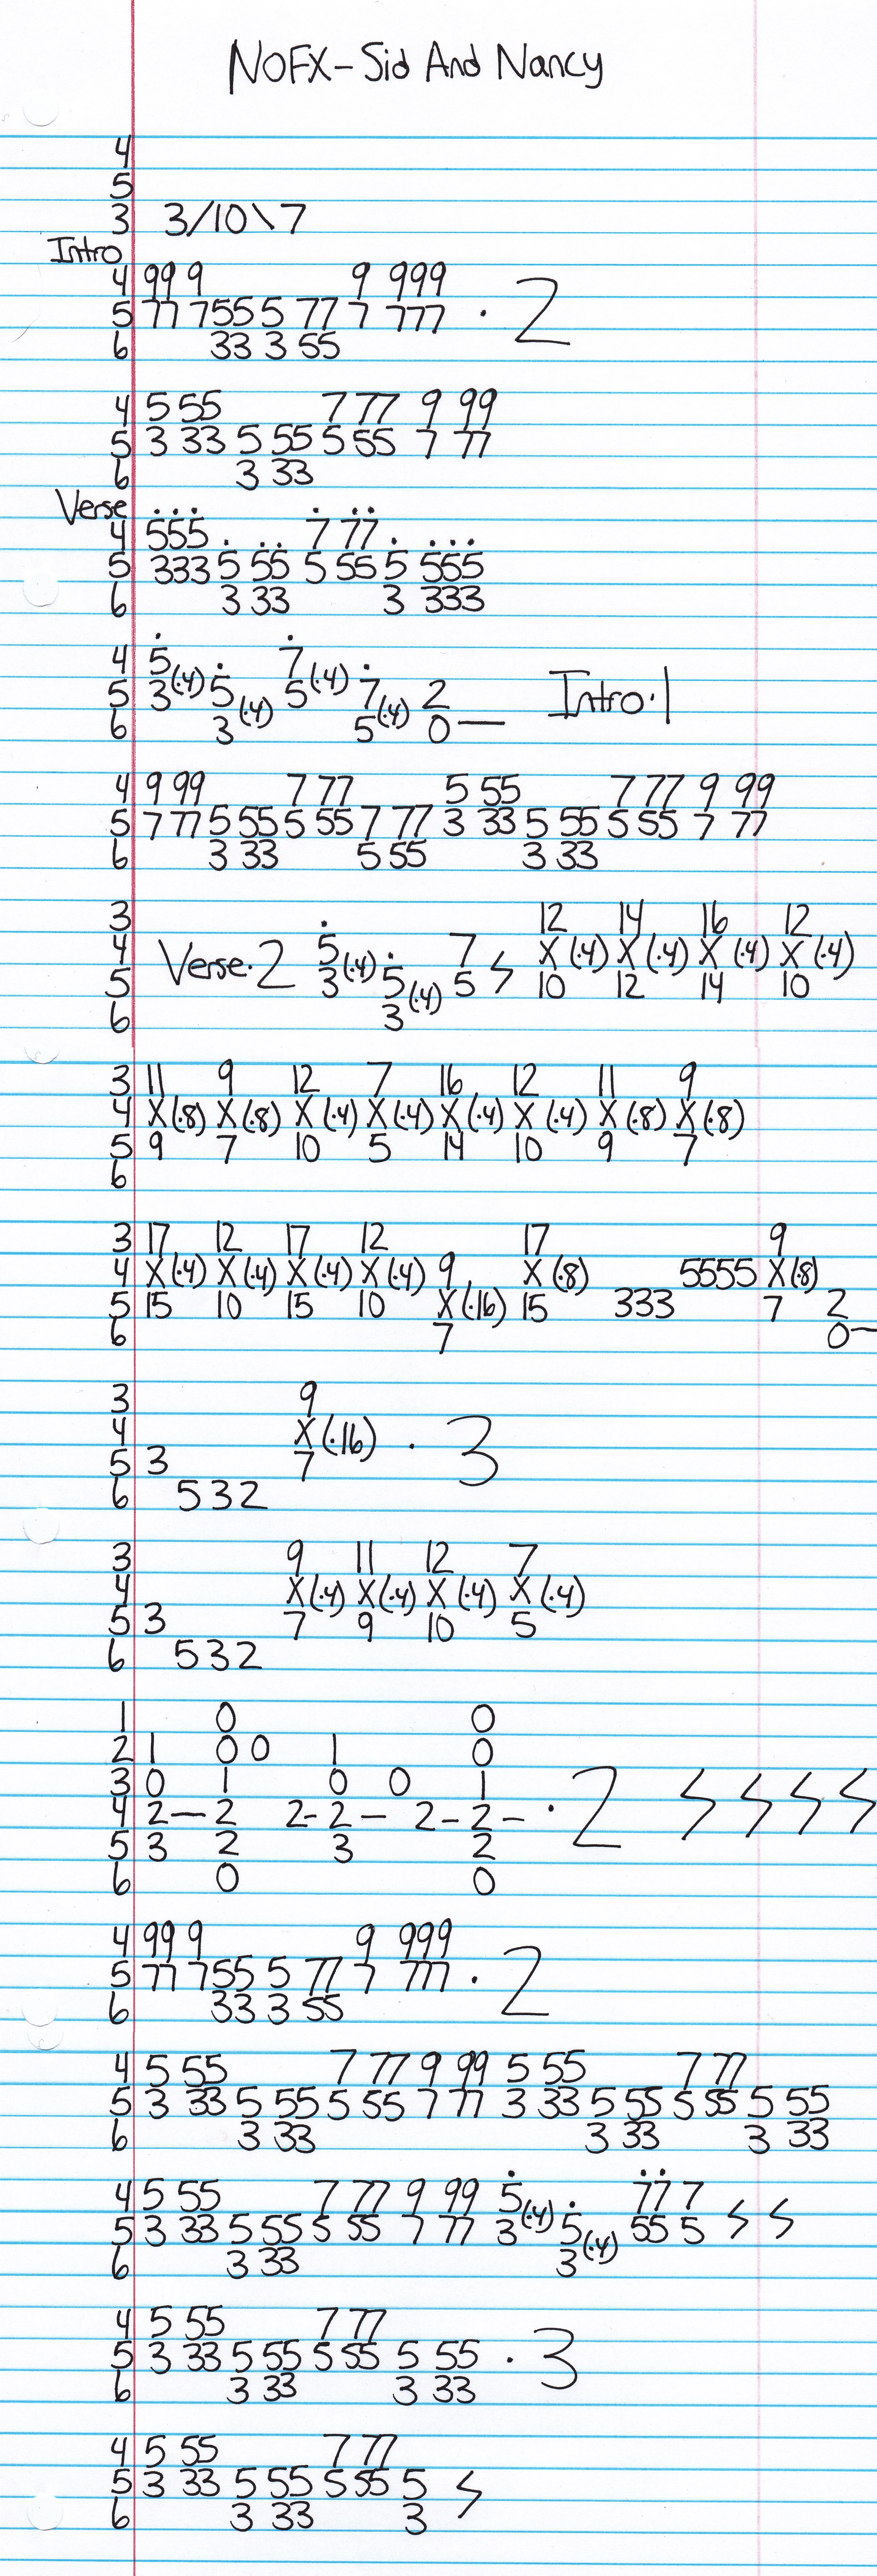 NOFX-Sid And Nancy
4
5
3 3/10\7
Intro
4 99 9 9 999
5 77 755 5 77 7 777 · 2
6 33 3 55
4 5 55 7 77 9 99
5 3 33 5 55 5 55 7 77
6 3 33
Verse
4 555 7 77
5 333 5 55 5 55 5 555
6 3 33 3 333
4 5 7
5 3(·4) 5 5(·4) 7 2 Intro·1
6 3(·4) 5(·4) 0—
4 9 99 7 77 5 55 7 77 9 99
5 7 77 5 55 5 55 7 77 3 33 5 55 5 55 7 77
6 3 33 5 55 3 33
3 12 14 16 12
4 Verse·2 5 7 X(·4) X(·4) X(·4) X(·4)
5 3(·4) 5 5 10 12 14 10
6 3(·4)
3 11 9 12 7 16 12 11 9
4 X(·8) X(·8) X(·4) X(·4) X(·4) X(·4) X(·8) X(·8)
5 9 7 10 5 14 10 9 7
6
3 17 12 17 12 17 9
4 X(·4) X(·4) X(·4) X(·4) 9 X(·8) 5555 X(·8)
5 15 10 15 10 X(·16) 15 333 7 2
6 7 0—
3 9
4 X(·16) · 3
5 3 7
6 532
3 9 11 12 7
4 X(·4) X(·4) X(·4) X(·4)
5 3 7 9 10 5
6 532
1 0 0
2 1 0 0 1 0
3 0 1 0 0 1
4 2—2 2-2— 2-2- · 2
5 3 2 3 2
6 0 0
4 99 9 9 999
5 77 755 5 77 7 777 · 2
6 33 3 55
4 5 55 7 77 9 99 5 55 7 77
5 3 33 5 55 5 55 7 77 3 33 5 55 5 55 5 55
6 3 33 3 33 3 33
4 5 55 7 77 9 99 5 77 7
5 3 33 5 55 5 55 7 77 3(·4) 5 55 5
6 3 33 3(·4)
4 5 55 7 77
5 3 33 5 55 5 55 5 55 · 3
6 3 33 3 33
4 5 55 7 77
5 3 33 5 55 5 55 5
6 3 33 3